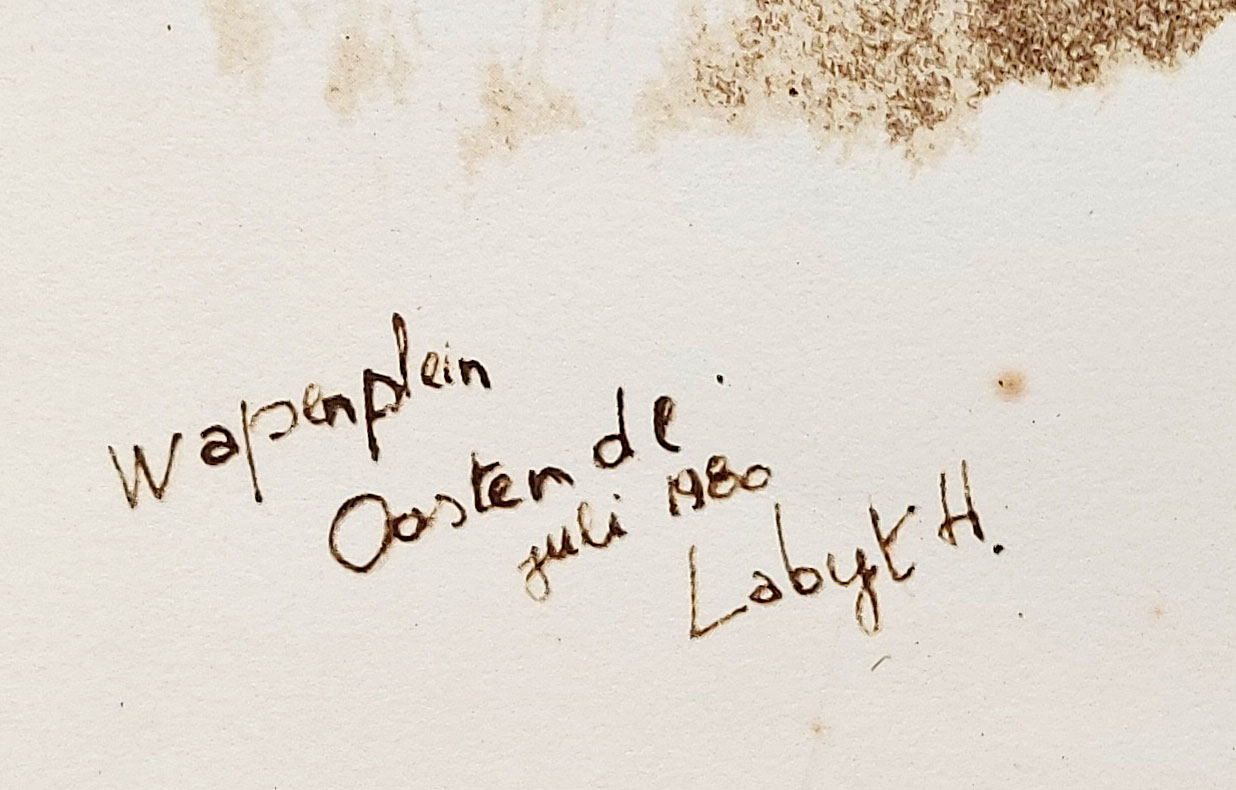 Wapenplein
Oostende
juli 1980
Labyt H.